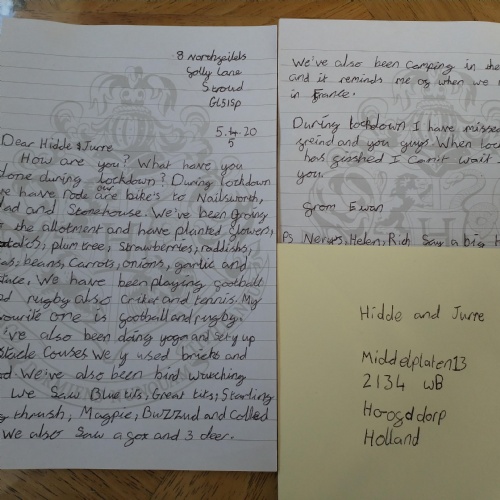 8 Northfeilds
Golly Lane
Stroud
GL51SP
5.4.20
5
Dear Hidde & Jurre
How are you? What have you
done during lockdown? During lockdown
we have rode our bike's to Nailsworth,
and Stonehouse. We've been Growing
the allotment and have planted flowers,
plum tree, strawberries, raddishs,
beans, Carrots, onions, garlic and
We have been playing football
rugby also criket and tennis. My
favourite one is football and rugby.
I've also been doing yoga and set up
obstacle Courses. We used bricks and
We've also been bird watching
we Saw Blue tits, Great tits, Starling
thrush, Magpie, Buzzud and Colled
We also Saw a fox and 3 deer.
We've also been Camping in the
and it reminds me of when we
in France.
During lockdown I have missed
freind and you guys. When lock
has finished I Can't wait
you.
from Ewan
Ps Nerys, Helen, Rich Say a big h
Hidde and Jurre
Middelplaten 13
2134 WB
Hoogddorp
Holland